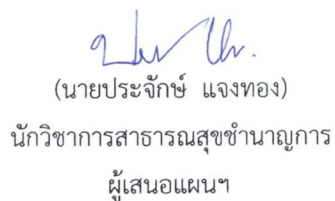 (นายประจักษ์ แจงทอง)
นักวิชาการสาธารณสุขชำนาญการ
ผู้เสนอแผนฯ